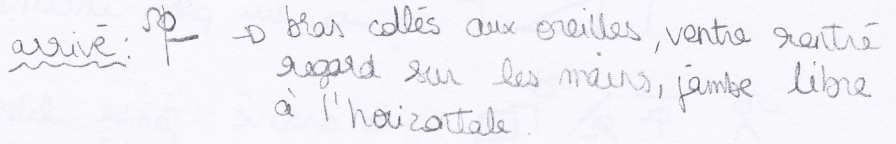 arrivé : → bras collés aux oreilles, ventre rentré
regard sur les mains, jambe libre
à l'horizontale.